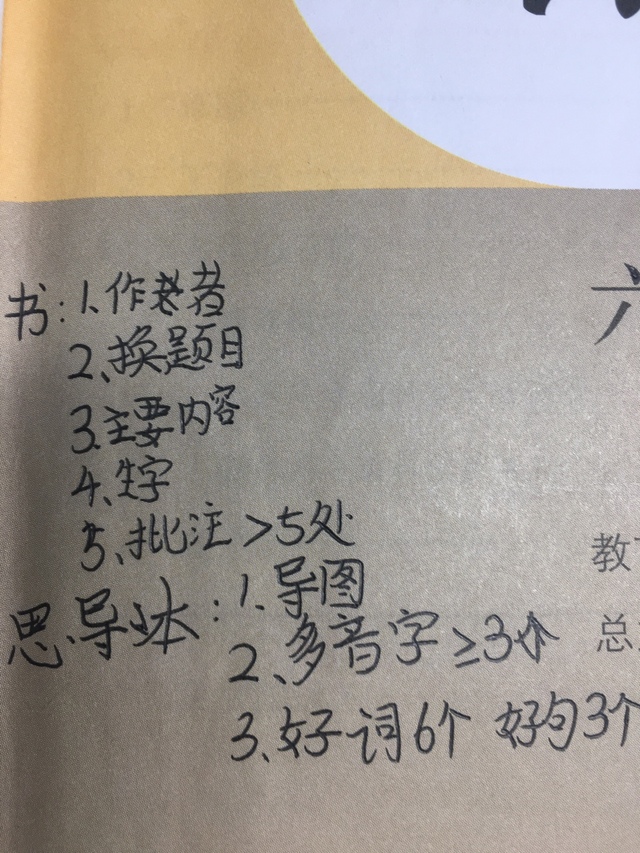 书:1、作者
2、换题目
3、主要内容
4、生字
5、批注>5处
思.导本:1、导图
2、多音字≥3个
3、好词6个 好句3个
六
教
总